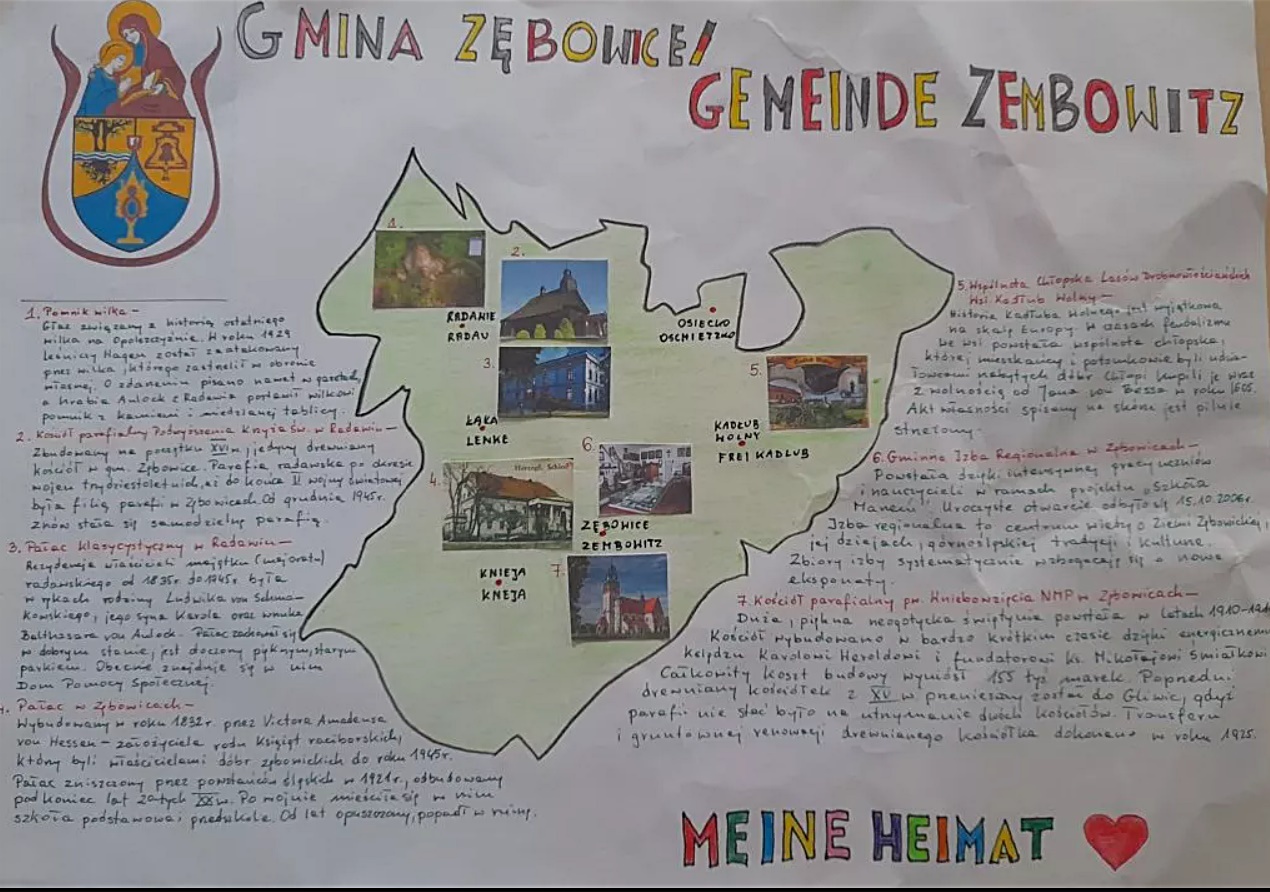 GMINA ZĘBOWICE/
GEMEINDE ZEMBOWITZ
1. Pomnik wilka –
Głaz związany z historią ostatniego
wilka na Opolszczyźnie. W roku 1929
leśniczy Hagen został zaatakowany
przez wilka, którego zastrzelił w obronie
własnej. O zdarzeniu pisano nawet w gazetach,
a hrabia Aulock z Radawia postawił wilkowi
pomnik z kamieni i miedzianej tablicy.
2. Kościół parafialny Podwyższenia Krzyża Św. w Radawiu –
Zbudowany na początku XVI w. jedyny drewniany
kościół w gm. Zębowice. Parafia radawska po okresie
wojen trzydziestoletnich, aż do końca II wojny światowej
była filią parafii w Zębowicach. Od grudnia 1945r.
znów stała się samodzielną parafią.
3. Pałac klasycystyczny w Radawiu –
Rezydencja właścicieli majątku (majoratu)
radawskiego od 1835r do 1945r. była
w rękach rodziny Ludwika von
jego syna Karola oraz wnuka
Balthasara von Aulock. Pałac zachował się
w dobrym stanie, jest otoczony pięknym, starym
parkiem. Obecnie znajduje się w nim
Dom Pomocy Społecznej.
4. Pałac w Zębowicach –
Wybudowany w roku 1832r. przez Victora Amadeusa
von Hessen – założyciela rodu Książąt raciborskich,
który byli właścicielami dóbr zębowickich do roku 1945r.
Pałac zniszczony przez powstańców śląskich w 1921r., odbudowany
pod koniec lat 20-tych XX w. Po wojnie mieściła się w nim
szkoła podstawowa i przedszkole. Od lat opuszczony, popadł w ruinę.
1.
2.
RADAWIE
RADAU
OSIECKO
OSCHIETZKO
3.
5.
ŁĄKA
LENKE
KADŁUB
WOLNY
FREI KADLUB
6.
4.
Herzogl. Schloß
ZĘBOWICE
ZEMBOWITZ
KNIEJA
KNEJA
7.
5. Wspólnota Chłopska Lasów
Wsi Kadłub Wolny –
Historia Kadłuba Wolnego jest wyjątkowa
na skalę Europy. W czasach feudalizmu
we wsi powstała wspólnota chłopska,
której mieszkańcy i potomkowie byli udzia-
łowcami nabytych dóbr. Chłopi kupili je wraz
z wolnością od Jana von Bessa w roku 1605.
Akt własności spisany na skórze jest pilnie
strzeżony.
6. Gminna Izba Regionalna w Zębowicach –
Powstała dzięki intensywnej pracy uczniów
i nauczycieli w ramach projektu „Szkoła
Marzeń". Uroczyste otwarcie odbyło się 15.10.2006r.
Izba regionalna to centrum wiedzy o Ziemi Zębowickiej,
jej dziejach, górnośląskiej tradycji i kulturze.
Zbiory izby systematycznie wzbogacają się o nowe
eksponaty.
7. Kościół parafialny pw. Wniebowzięcia NMP w Zębowicach –
Duża, piękna neogotycka świątynia powstała w latach 1910-
Kościół wybudowano w bardzo krótkim czasie dzięki energicznemu
księdzu Karolowi Heroldowi i fundatorowi ks. Mikołajowi Śmiałkowi
Całkowity koszt budowy wyniósł 155 tyś marek. Poprzedni
drewniany kościółek z XV w. przeniesiony został do Gliwic, gdyż
parafii nie stać było na utrzymanie dwóch kościołów. Transferu
i gruntownej renowacji drewnianego kościółka dokonano w roku 1925.
MEINE HEIMAT